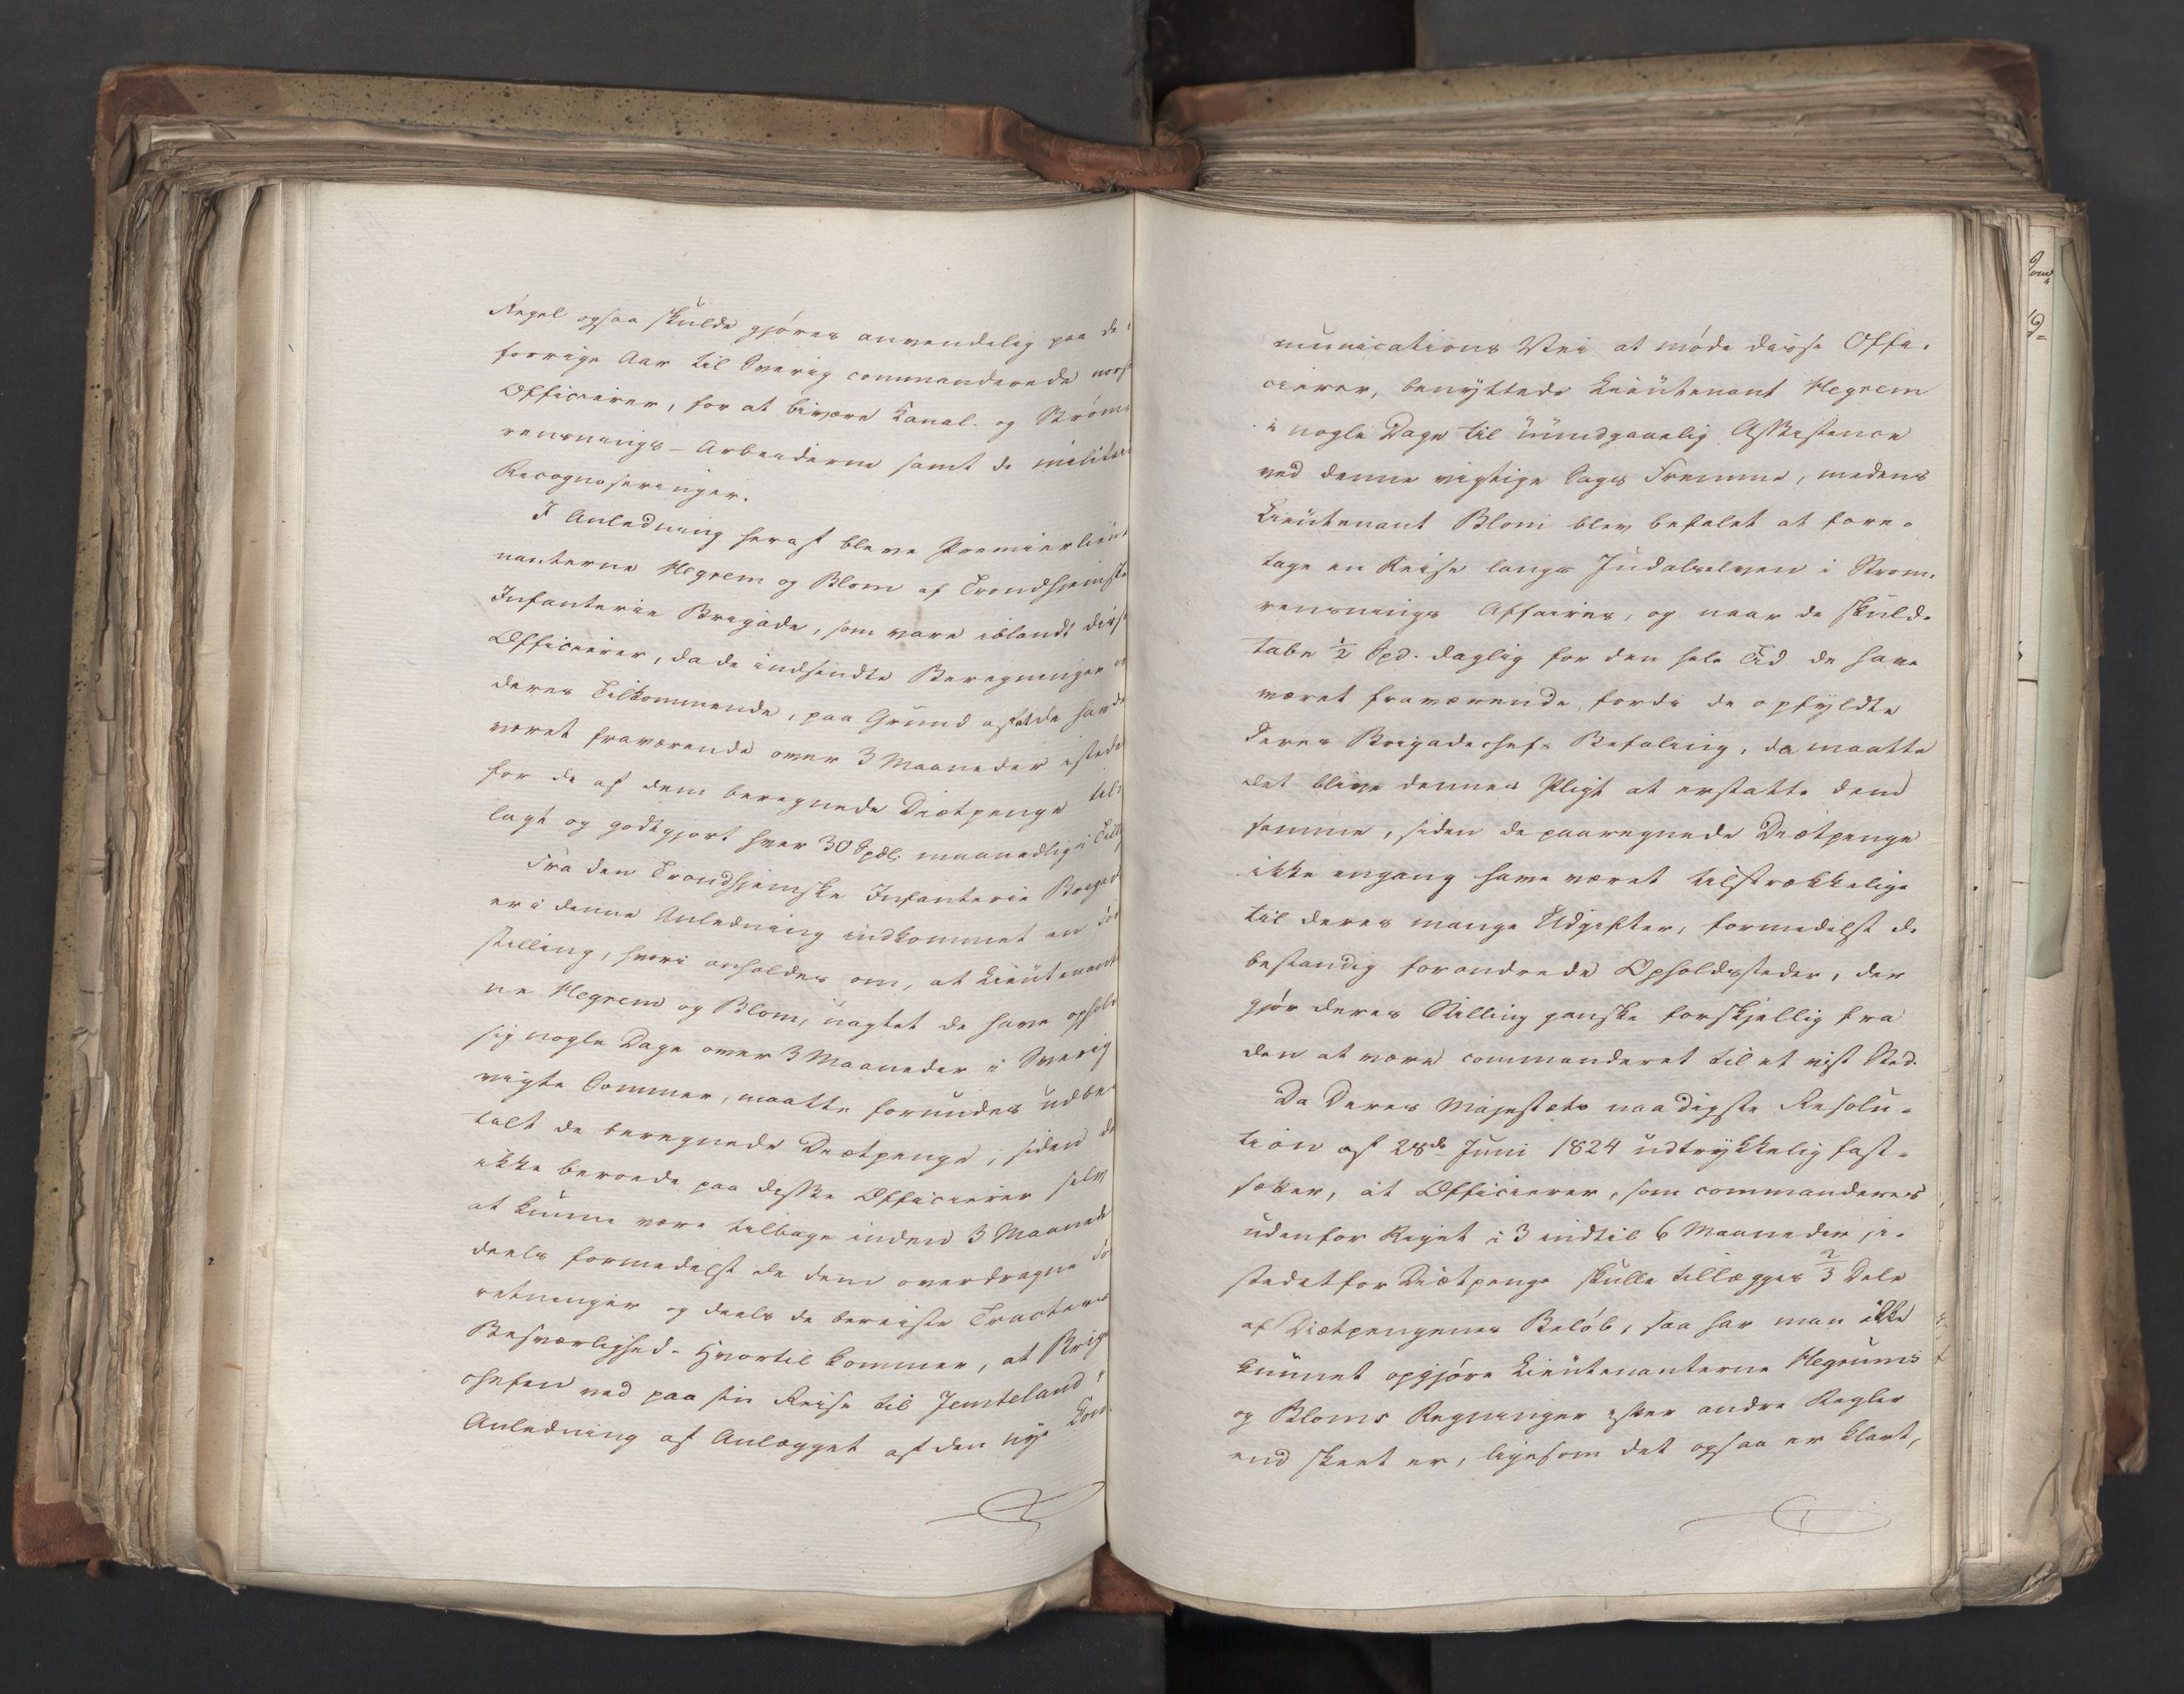 Regel ogsaa skulde gjøres anvendelig paa de i
forrige Aar til Sverig commanderede norsk
Officierer, for at bivære Kanal- og Ström-
rensnings-Arbeiderne samt de militær
Recognoseringer.
I Anledning heraf bleve Premierlieut
nanterne Hegrem og Blom af Trondhjemske
Infanterie Brigade, som vare iblandt disse
Officierer, da de indsendte Beregninger
deres Tilkommende, paa Grund af at de havde
været fraværende over 3 Maaneder istede
for de af dem beregnede Diætpenge til-
lagt og godtgjort hver 30 Spdlr maanedlig i Till
Fra den Trondhjemske Infanterie Brigad
er i denne Anledning indkommet en For
stilling, hvori anholdes om, at Lieutenant
ne Hegrem og Blom, uagtet de have ophold
sig nogle Dage over 3 Maaneder i Sverig
vigte Sommer, maatte forundes udbe-
talt de beregnede Diætpenge, siden de
ikke beroede paa disse Officierer selv
at kunne være tilbage inden 3 Maaned
deels formedelst de dem overdragne For
retninger og deels de bereiste Tracters
Besværlighed. Hvortil kommer, at Brig
chefen ved paa sin Reise til Jemteland i
Anledning af Anlægget af den nye Com-
munications Vei at møde disse Offi-
cierer, benyttede Lieutenant Hegrem
i nogle Dage til uundgaaelig Assistence
ved denne vigtige Sags Fremme, medens
Lieutenant Blom blev befalet at fore-
tage en Reise langs Indalselven i Strøm-
rensnings Affaires, og naar de skuld-
tabe ½ Spd. daglig for den hele Tid de have
været fraværende, fordi de opfyldte
deres Brigadechefs Befaling, da maatte
det blive dennes Pligt at erstatte dem
samme, siden de paaregnede Diætpenge
ikke engang have været tilstrækkelige
til deres mange Udgifter, formedelst de
bestandig forandrede Opholdssteder, der
gjør deres Stilling ganske forskjellig fra
den at være commanderet til et vist Sted.
Da Deres Majestæts naadigste Resolu-
tion af 28de Juni 1824 udtrykkelig fast-
sætter, at Officierer, som commanderes
udenfor Riget i 3 indtil 6 Maaneder, i-
stedetfor Diætpenge skulle tillægges 2/3 Dele
af Diætpengenes Beløb, saa har man ikke
kunnet opgjøre Lieutenanterne Hegrums
og Bloms Regninger efter andre Regler
end skeet er, ligesom det ogsaa er klart,